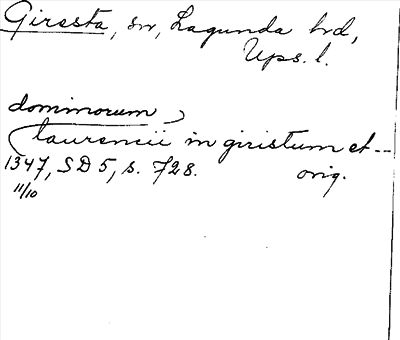 Giresta, sn, Lagunda hd,
Ups. l.
dominorum
laurencii in giristum et --
1347, SD 5, s. 728. orig.
11/10